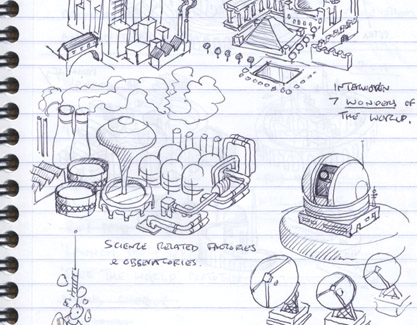 INTERWOVEN
7 WONDERS OF
THE WORLD.
SCIENCE RELATED FACTORIES
& OBSERVATORIES.